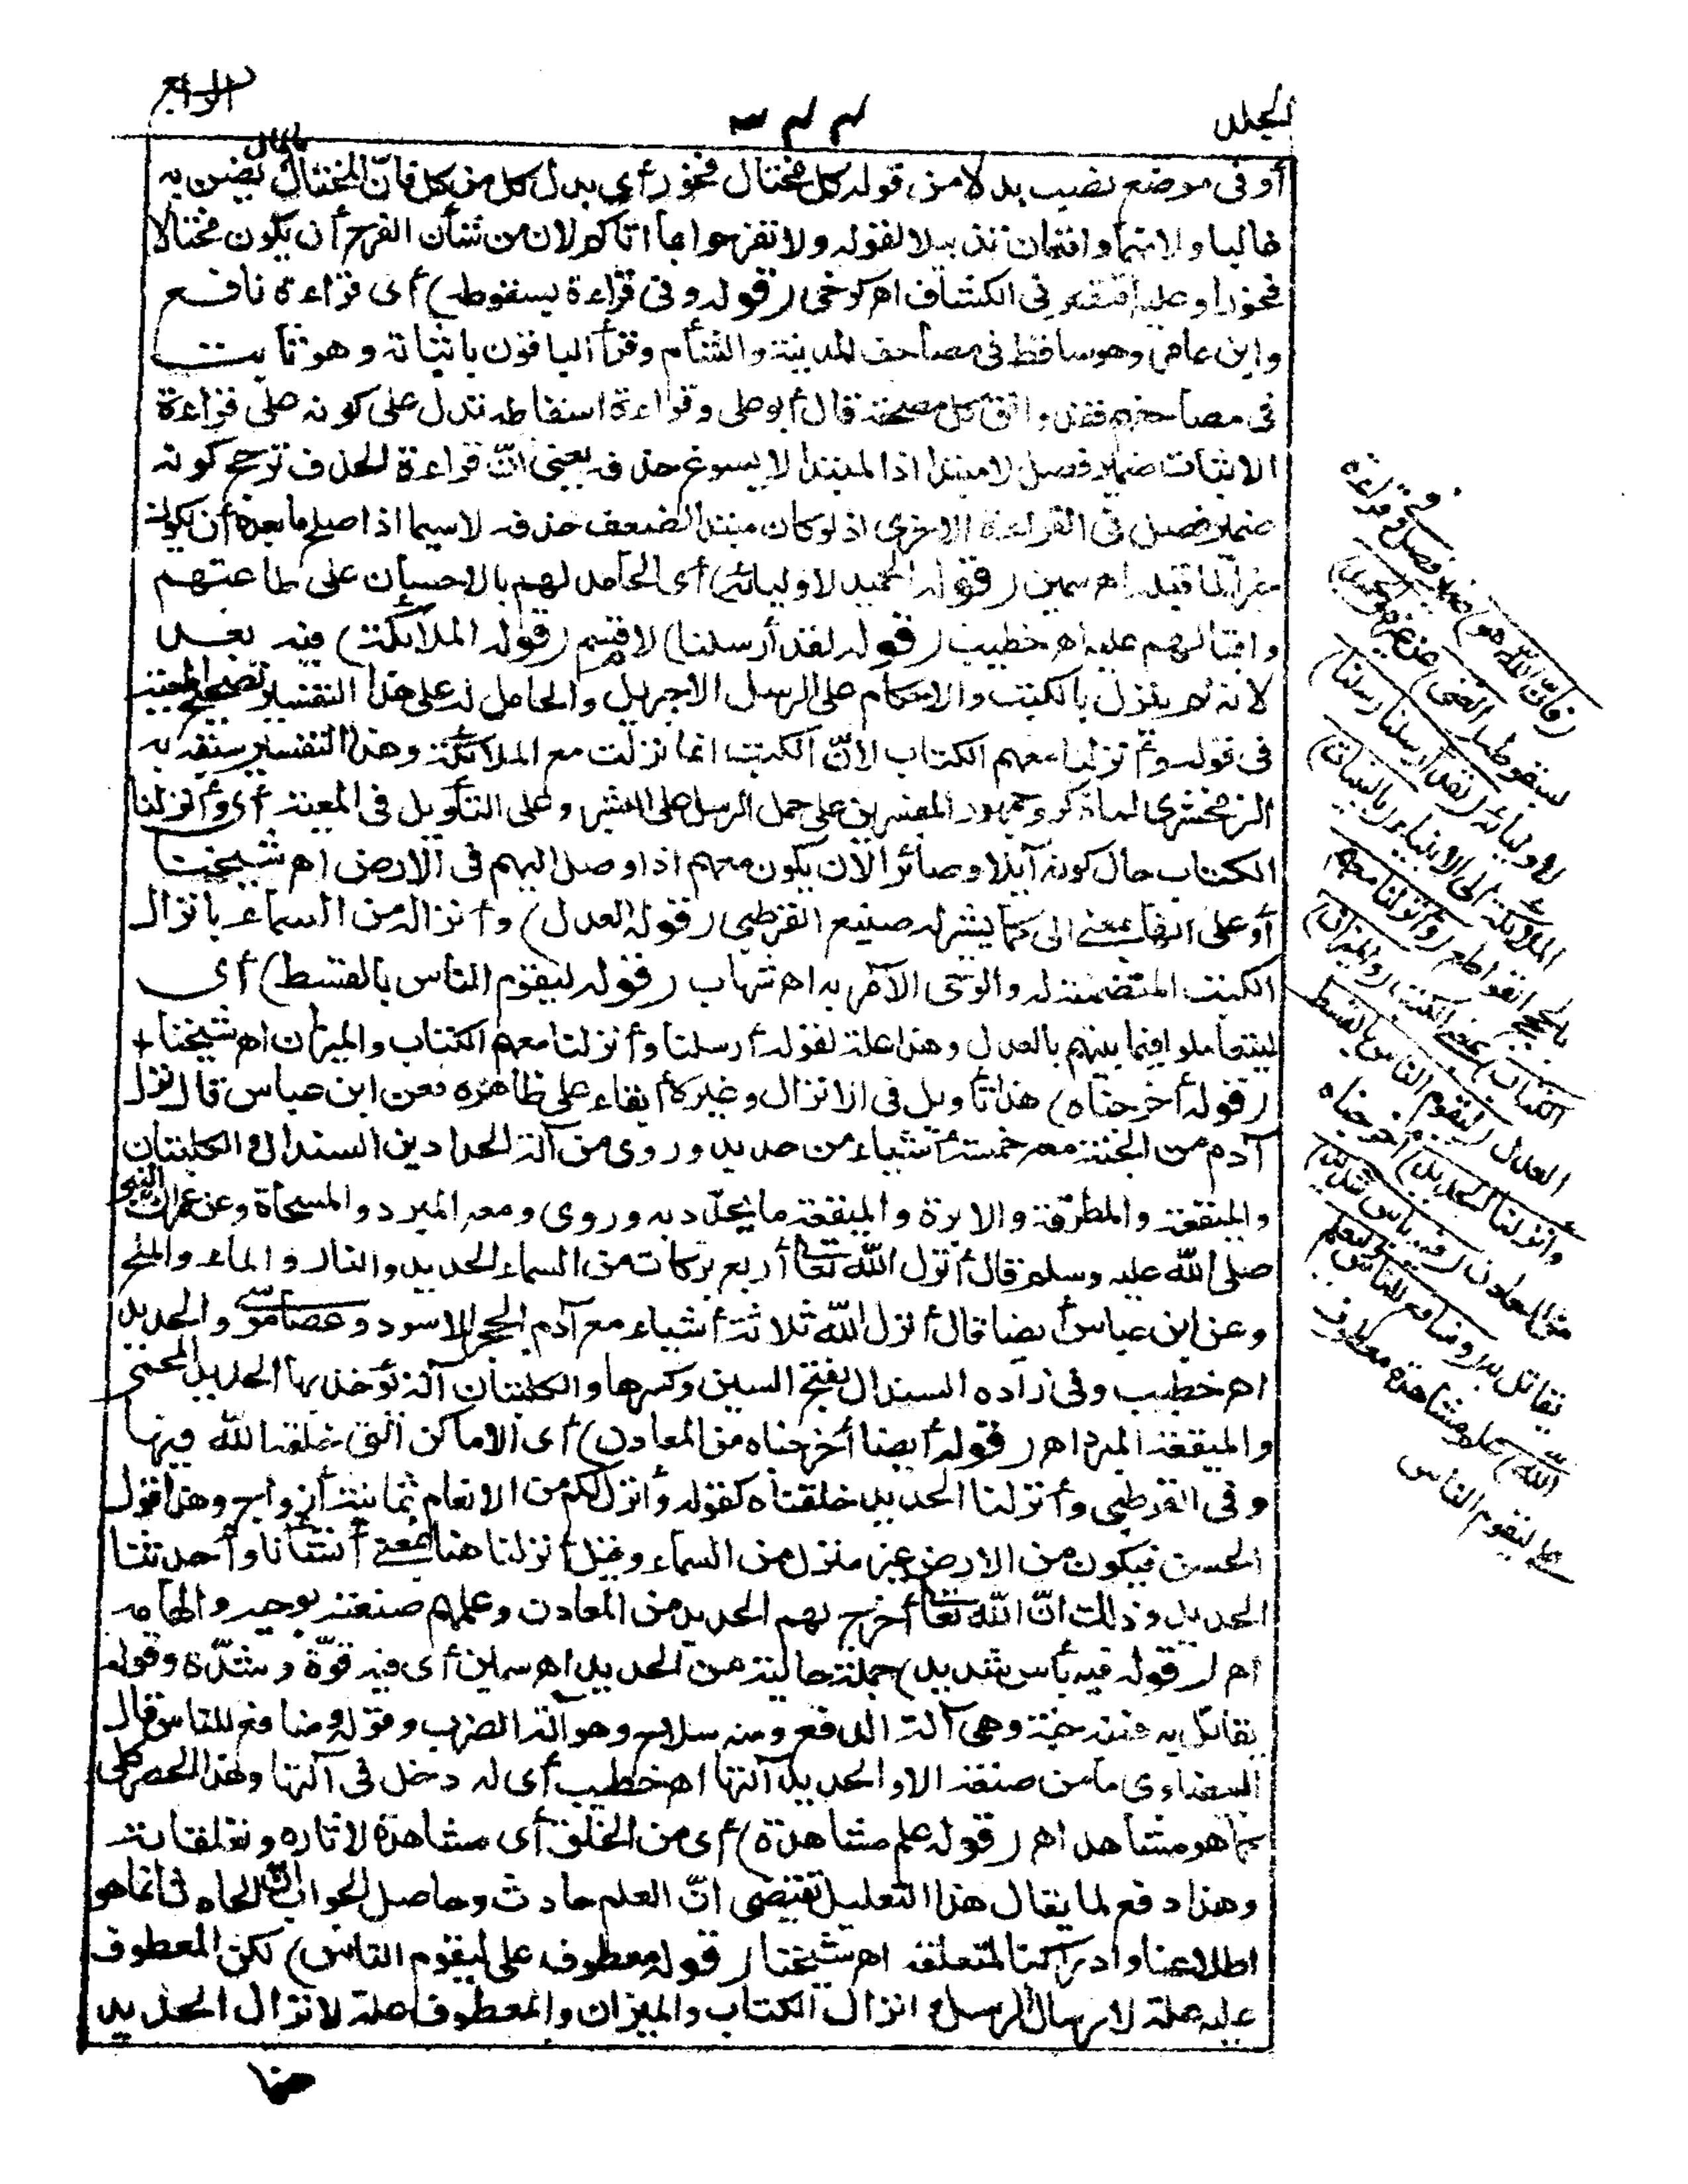 المجلد
الرابع
أو فى موضع نصب بدلا من قوله كل مختال فخور أى بدل كل من كل فانّ المختال بالمال يضن به
غالبا ولا سيما وافتتان تذييلا لقوله ولا تفرحوا بما آتاكم لان من شأن الفرح أن يكون مختالا
فخورا وعليه اقتصر فى الكشاف اهـ كرخى (قوله وفى قراءة بسقوطه) أى قراءة نافع
وابن عامر وهو ساقط فى مصاحف المدينة والشأم وقرأ الباقون باثباته وهو ثابت
فى مصاحفهم فقد وافق كل مصحفه قال أبو على وقراءة اسقاطه تدل على كونه على قراءة
الاثبات ضمير فصل لا مبتدا اذ المبتدا لا يسوغ حذفه يعنى انّ قراءة الحذف ترجح كونه
ضمير فصل فى القراءة الاخرى اذ لو كان مبتدا لضعف حذفه لا سيما اذا صلح ما بعده أن يكون
خبرا لما قبله اهـ سمين (قوله الحميد لاوليائه) أى الحامد لهم بالاحسان على طاعتهم
واقبالهم عليه اهـ خطيب (قوله لقد أرسلنا) لام قسم (قوله الملائكة) فيه بعد
لانه لم ينزل بالكتب والاحكام على الرسل الا جبريل والحامل له على هذا التفسير تصحيح المعية
فى قوله وأنزلنا معهم الكتاب لانّ الكتب انما نزلت مع الملائكة وهذا التفسير سبقه به
الزمخشرى لما ذكر وجمهور المفسرين على حمل الرسل على البشر وعلى التأويل فى المعية أى وأنزلنا
الكتاب حال كونه آيلا وصائرا لان يكون معهم اذا وصل اليهم فى الارض اهـ شيخنا
أو على انها بمعنى الى كما يشير له صنيع القرطبى (قوله العدل) وأنزاله من السماء بانزال
الكتب المتضمنة له والوحى الآمر به اهـ شهاب (قوله ليقوم الناس بالقسط) أى
ليتعاملوا فيما بينهم بالعدل وهذا علة لقوله أرسلنا وأنزلنا معهم الكتاب والميزان اهـ شيخنا
(قوله أخرجناه) هذا تأويل فى الانزال وغيره أبقاه على ظاهره فعن ابن عباس قال نزل
آدم من الجنة معه خمسة أشياء من حديد وروى من آلة الحدادين السندال والكلبتان
والميقعة والمطرقة والابرة والميقعة ما يحدّد به وروى ومعه المبرد والمسحاة وعن عمر ان النبى
صلى الله عليه وسلم قال أنزل الله تعالى أربع بركات من السماء الحديد والنار والماء والملح
وعن ابن عباس أيضا قال أنزل الله ثلاثة أشياء مع آدم الحجر الاسود وعصا موسى والحديد
اهـ خطيب وفى زاده السندال بفتح السين وكسرها والكلبتان آلة يؤخذ بها الحديد المحمى
والميقعة المبرد اهـ (قوله أيضا أخرجناه من المعادن) أى الاماكن التى خلقها الله فيها
وفى القرطبى وأنزلنا الحديد خلقناه كقوله وأنزل لكم من الانعام ثمانية أزواج وهذا قول
الحسن فيكون من الارض غير منزل من السماء وقيل أنزلنا هنا بمعنى أنشأنا وأحدثنا
الحديد وذلك انّ الله تعالى أخرج لهم الحديد من المعادن وعلمهم صنعته بوحيه والهامه
اهـ (قوله فيه بأس شديد) جملة حالية من الحديد اهـ سمين أى فيه قوّة وشدّة وقوله
يقاتل به فمنه جنة وهى آلة الدفع ومنه سلاح وهو آلة الضرب وقوله ومنافع للناس قال
البيضاوى ما من صنعة الا والحديد آلتها اهـ خطيب أى له دخل فى آلتها وهذا الحصر كلى
كما هو مشاهد اهـ (قوله علم مشاهدة) أى من الخلق أى مشاهدة لآثاره وتعلقاته
وهذا دفع لما يقال هذا التعليل يقتضى انّ العلم حادث وحاصل الجواب
اطلاعنا وادراكنا لمتعلقه اهـ شيخنا (قوله معطوف على ليقوم الناس) لكن المعطوف
عليه علة لارسال الرسل وانزال الكتاب والميزان والمعطوف علة لانزال الحديد
(فانّ الله هو) ضمير فصل وفى قراءة
بسقوطه (الغنى) عن غيره (الحميد)
لاوليائه (لقد أرسلنا رسلنا)
الملائكة الى الانبياء (بالبينات)
بالحجج القواطع (وأنزلنا معهم
الكتاب) بمعنى الكتب (والميزان)
العدل (ليقوم الناس بالقسط
وأنزلنا الحديد) أخرجناه
من المعادن (فيه بأس شديد)
يقاتل به (ومنافع للناس وليعلم
الله) علم مشاهدة معطوف
على ليقوم الناس